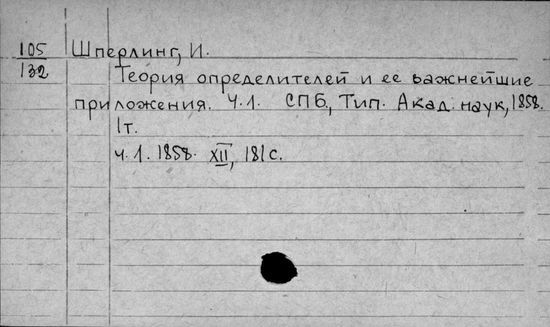 105 Шперлинг, И.
132 Теория определителей и ее важнейшие
приложения. Ч.1. СПб., Тип. Акад. наук, 1858.
1т.
ч.1. 1858. XII, 181с.